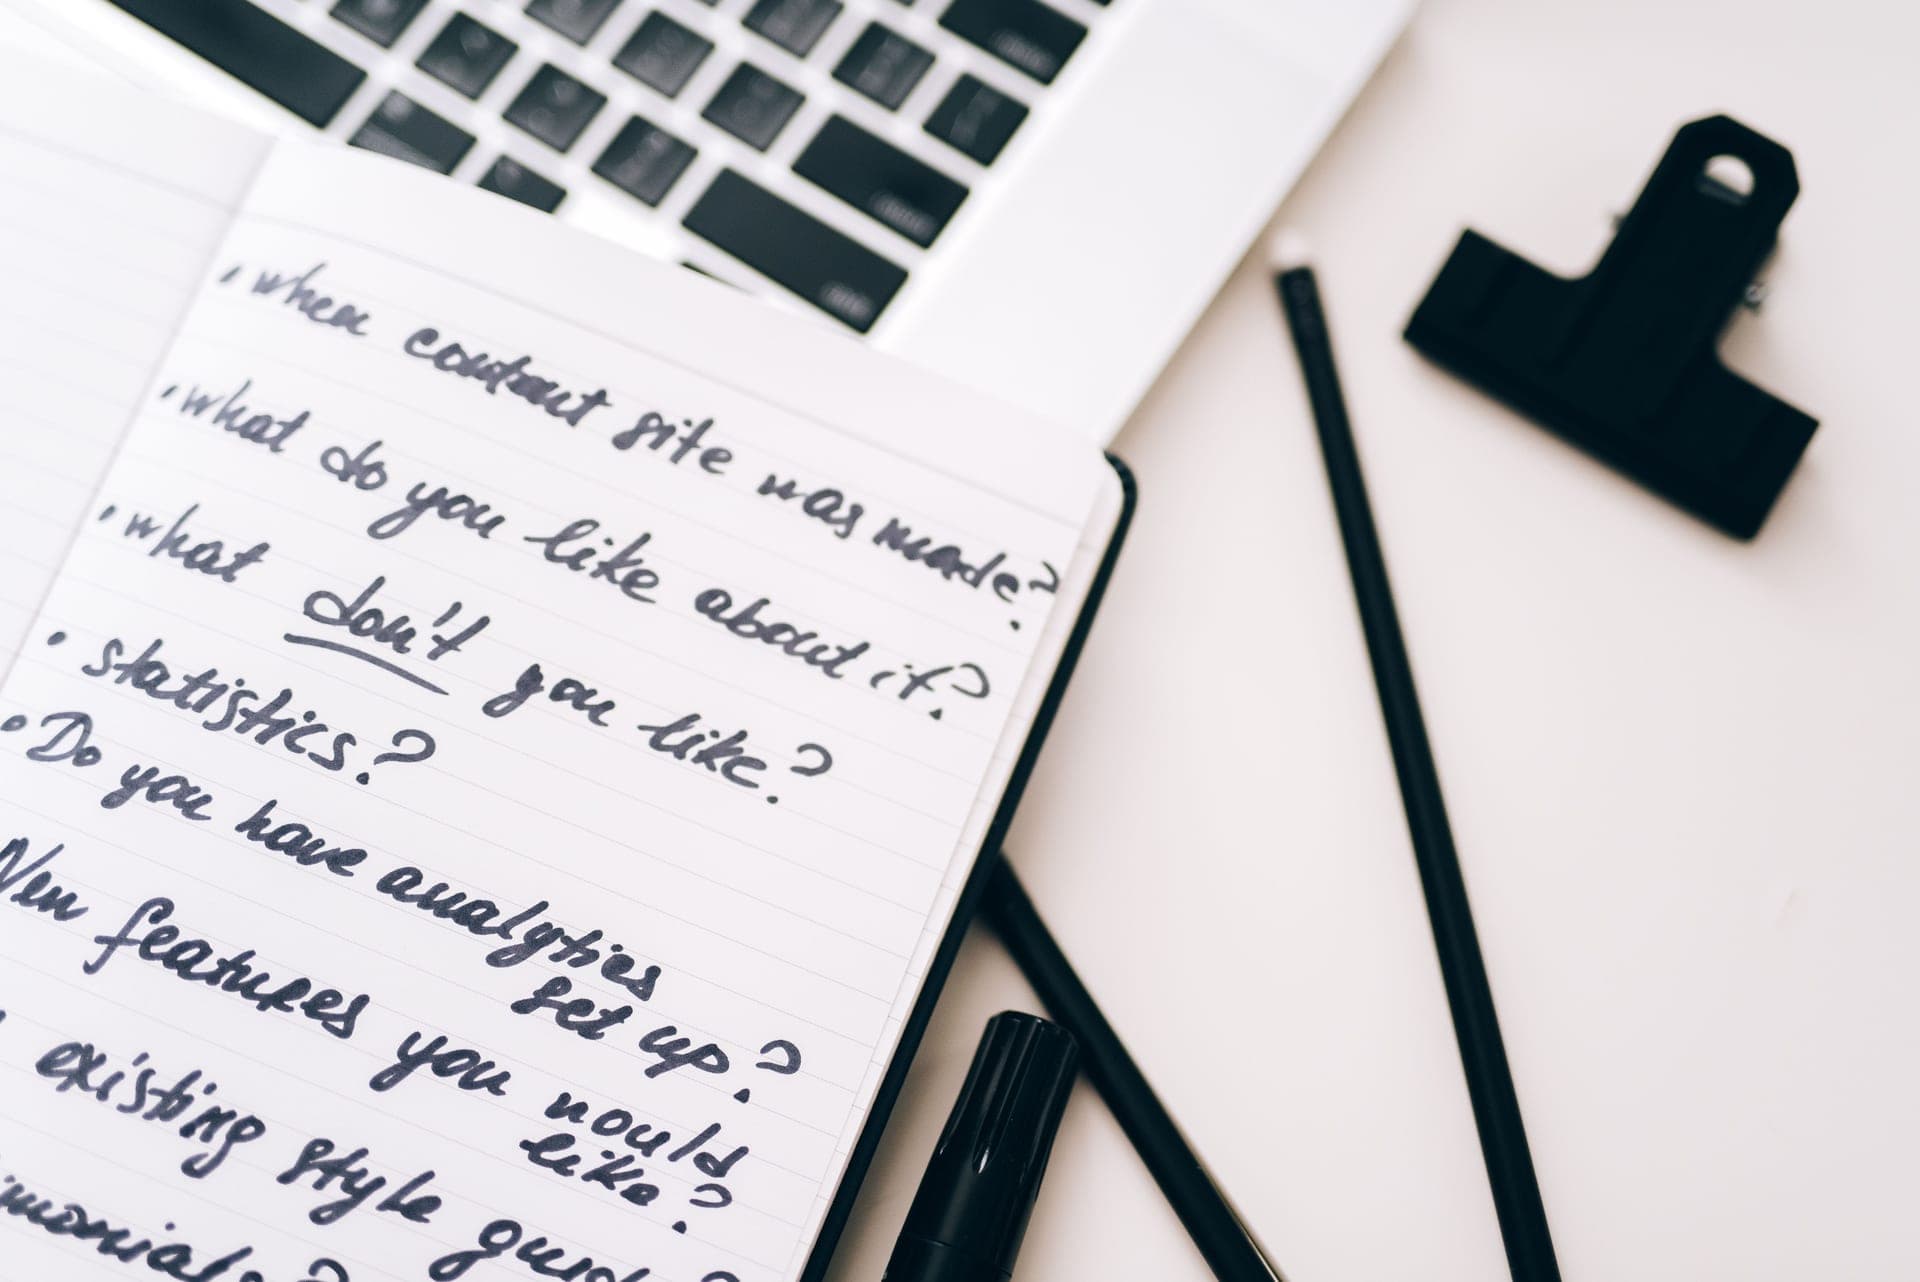 • when content site was made?
• what do you like about it?
• what don't you like?
• statistics?
• Do you have analytics
set up?
New features you would
like?
existing style guid
monials?